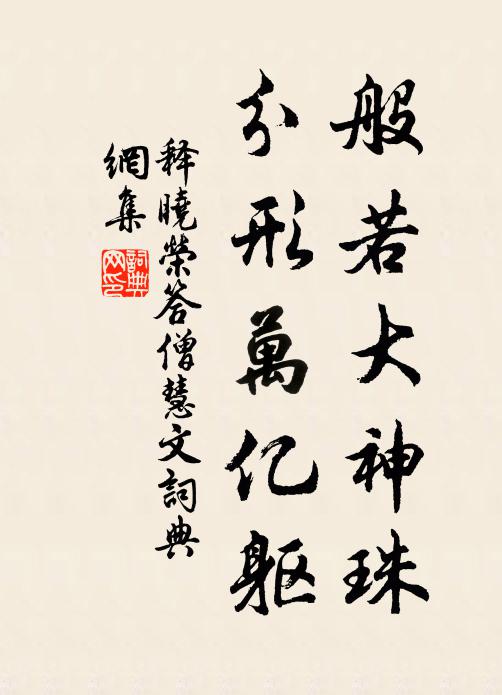 般若大神珠
分形萬亿躯
释曉榮答僧慧文詞典
網集
詞典
网印